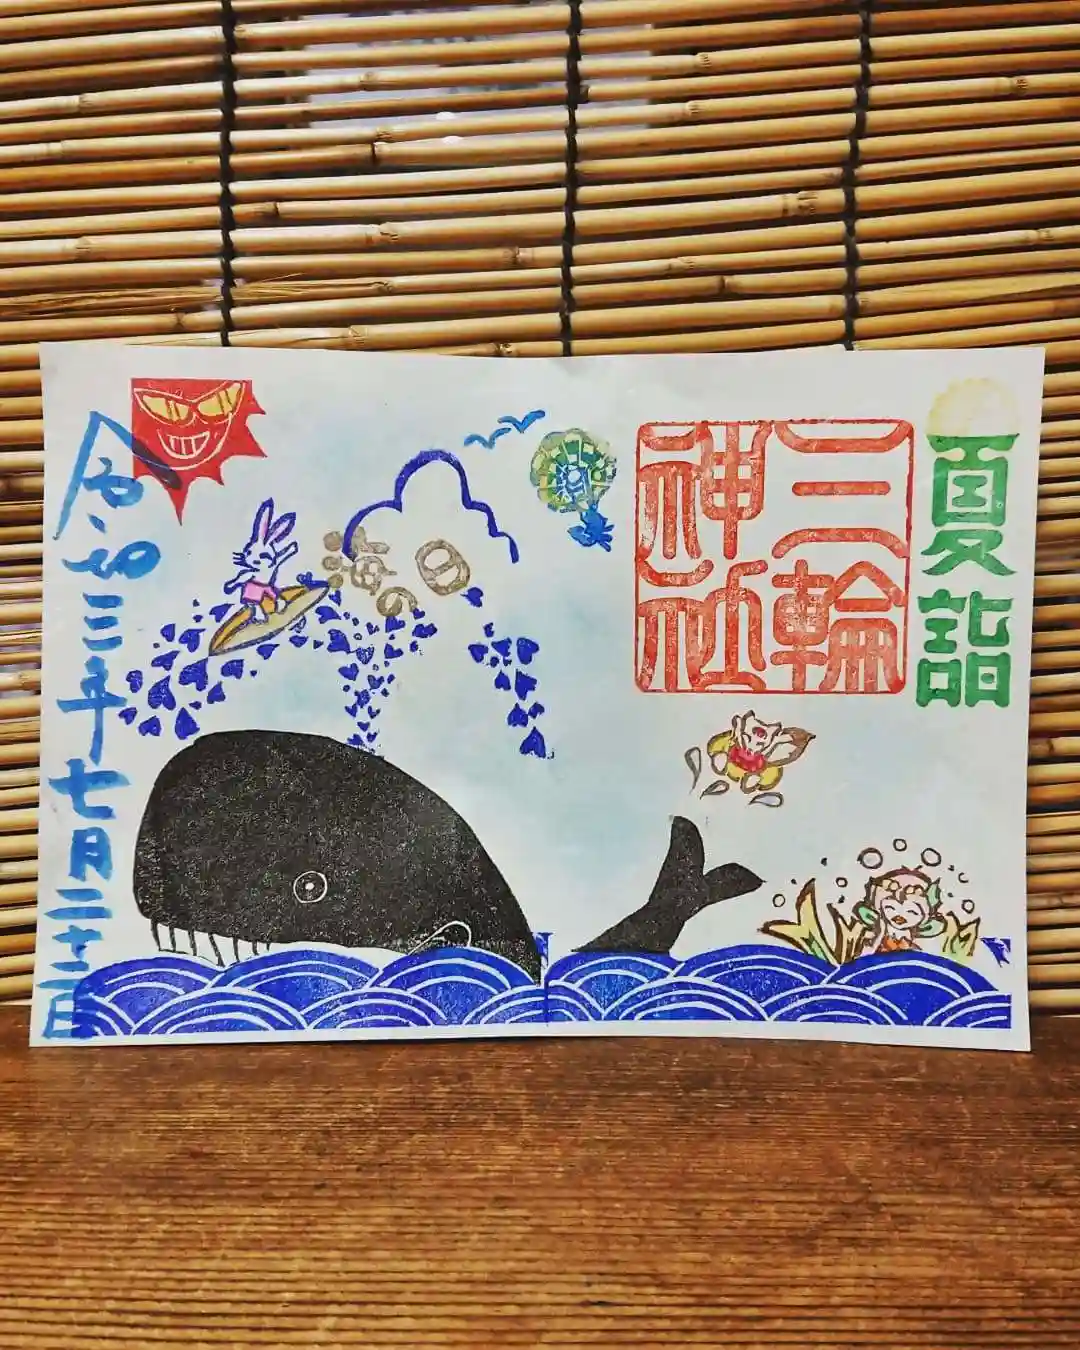 夏詣
三輪
神社
海の日
令和三年七月二十二日